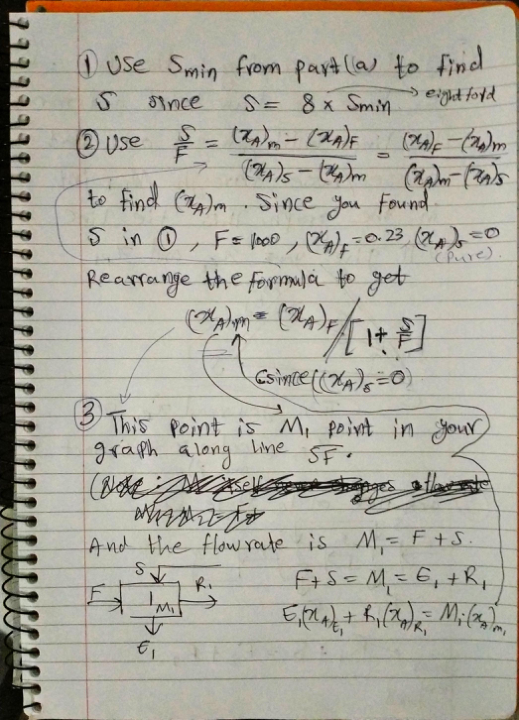 ① Use Smin from part (a) to find
S since S = 8 x Smin
eight fold
② Use S/F = ((xA)m - (xA)F) / ((xA)S - (xA)m) = ((xA)F - (xA)m) / ((xA)m - (xA)S)
to find (xA)m. Since you found
S in ①, F = 1000, (xA)F = 0.23, (xA)S = 0
(Pure).
Rearrange the formula to get
(xA)m = (xA)F / [1 + S/F]
(since (xA)S = 0)
③ This point is M1 point in your
graph along line SF.
(Note:
And the flowrate is M1 = F + S.
S
F 1 M1 R1
E1
F + S = M1 = E1 + R1
E1(xA)E1 + R1(xA)R1 = M1·(xA)m1